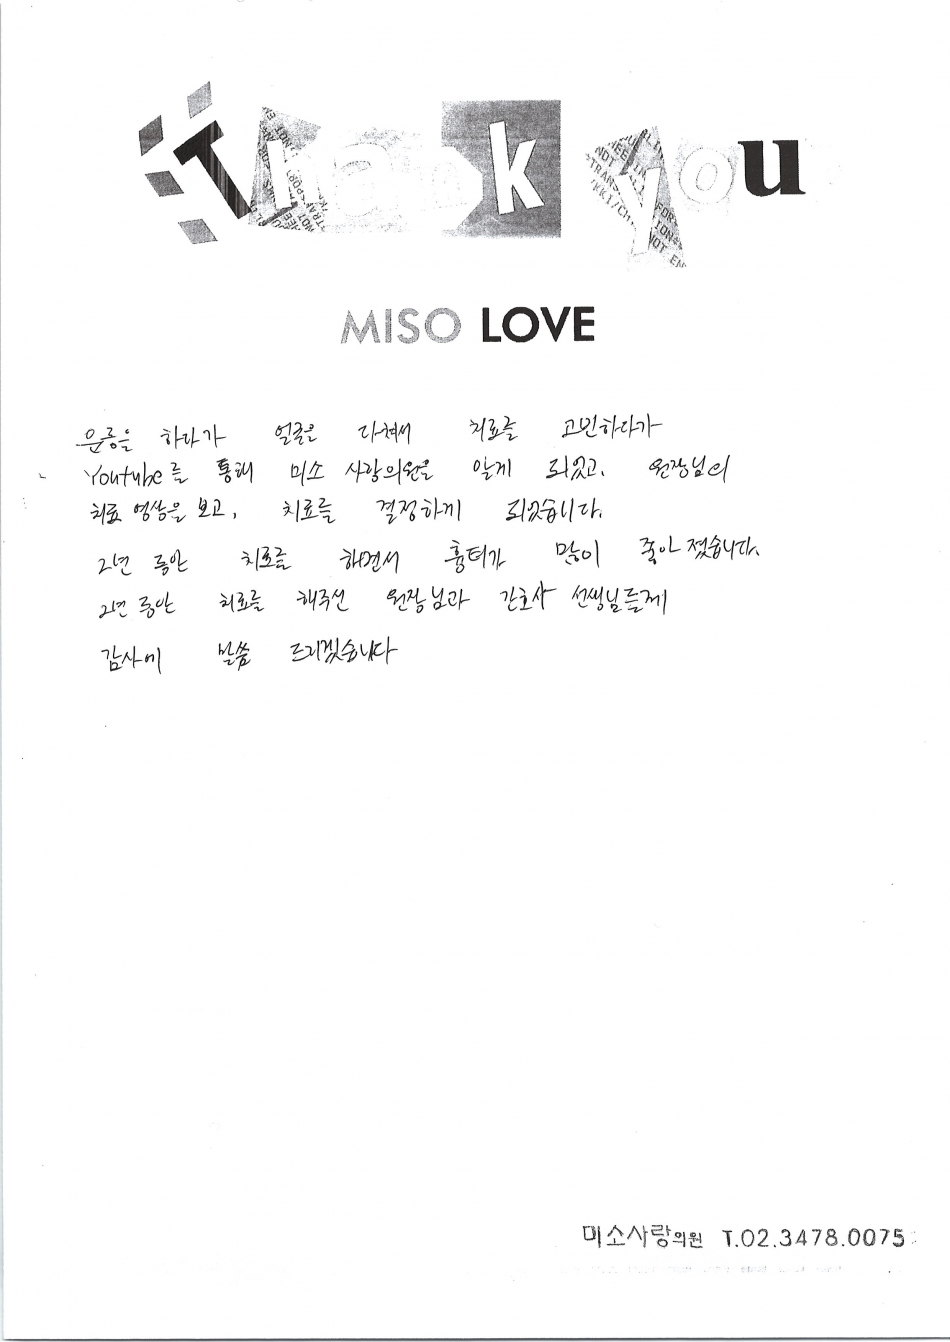 Thank you
MISO LOVE
운동을 하다가 얼굴을 다쳐서 치료를 고민하다가
Youtube를 통해 미소 사랑의원을 알게 되었고, 원장님의
치료 영상을 보고, 치료를 결정하게 되었습니다.
2년 동안 치료를 하면서 흉터가 많이 좋아 졌습니다.
2년 동안 치료를 해주신 원장님과 간호사 선생님들께
감사에 말씀 드리겠습니다
미소사랑의원 T.02.3478.0075